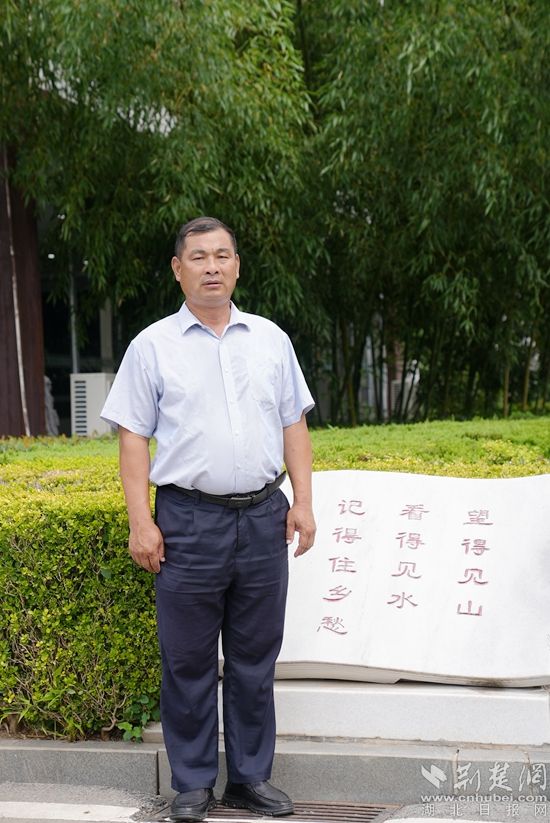 望得见山
看得见水
记得住乡愁
荆楚网
www.cnhubei.com
湖北日报网